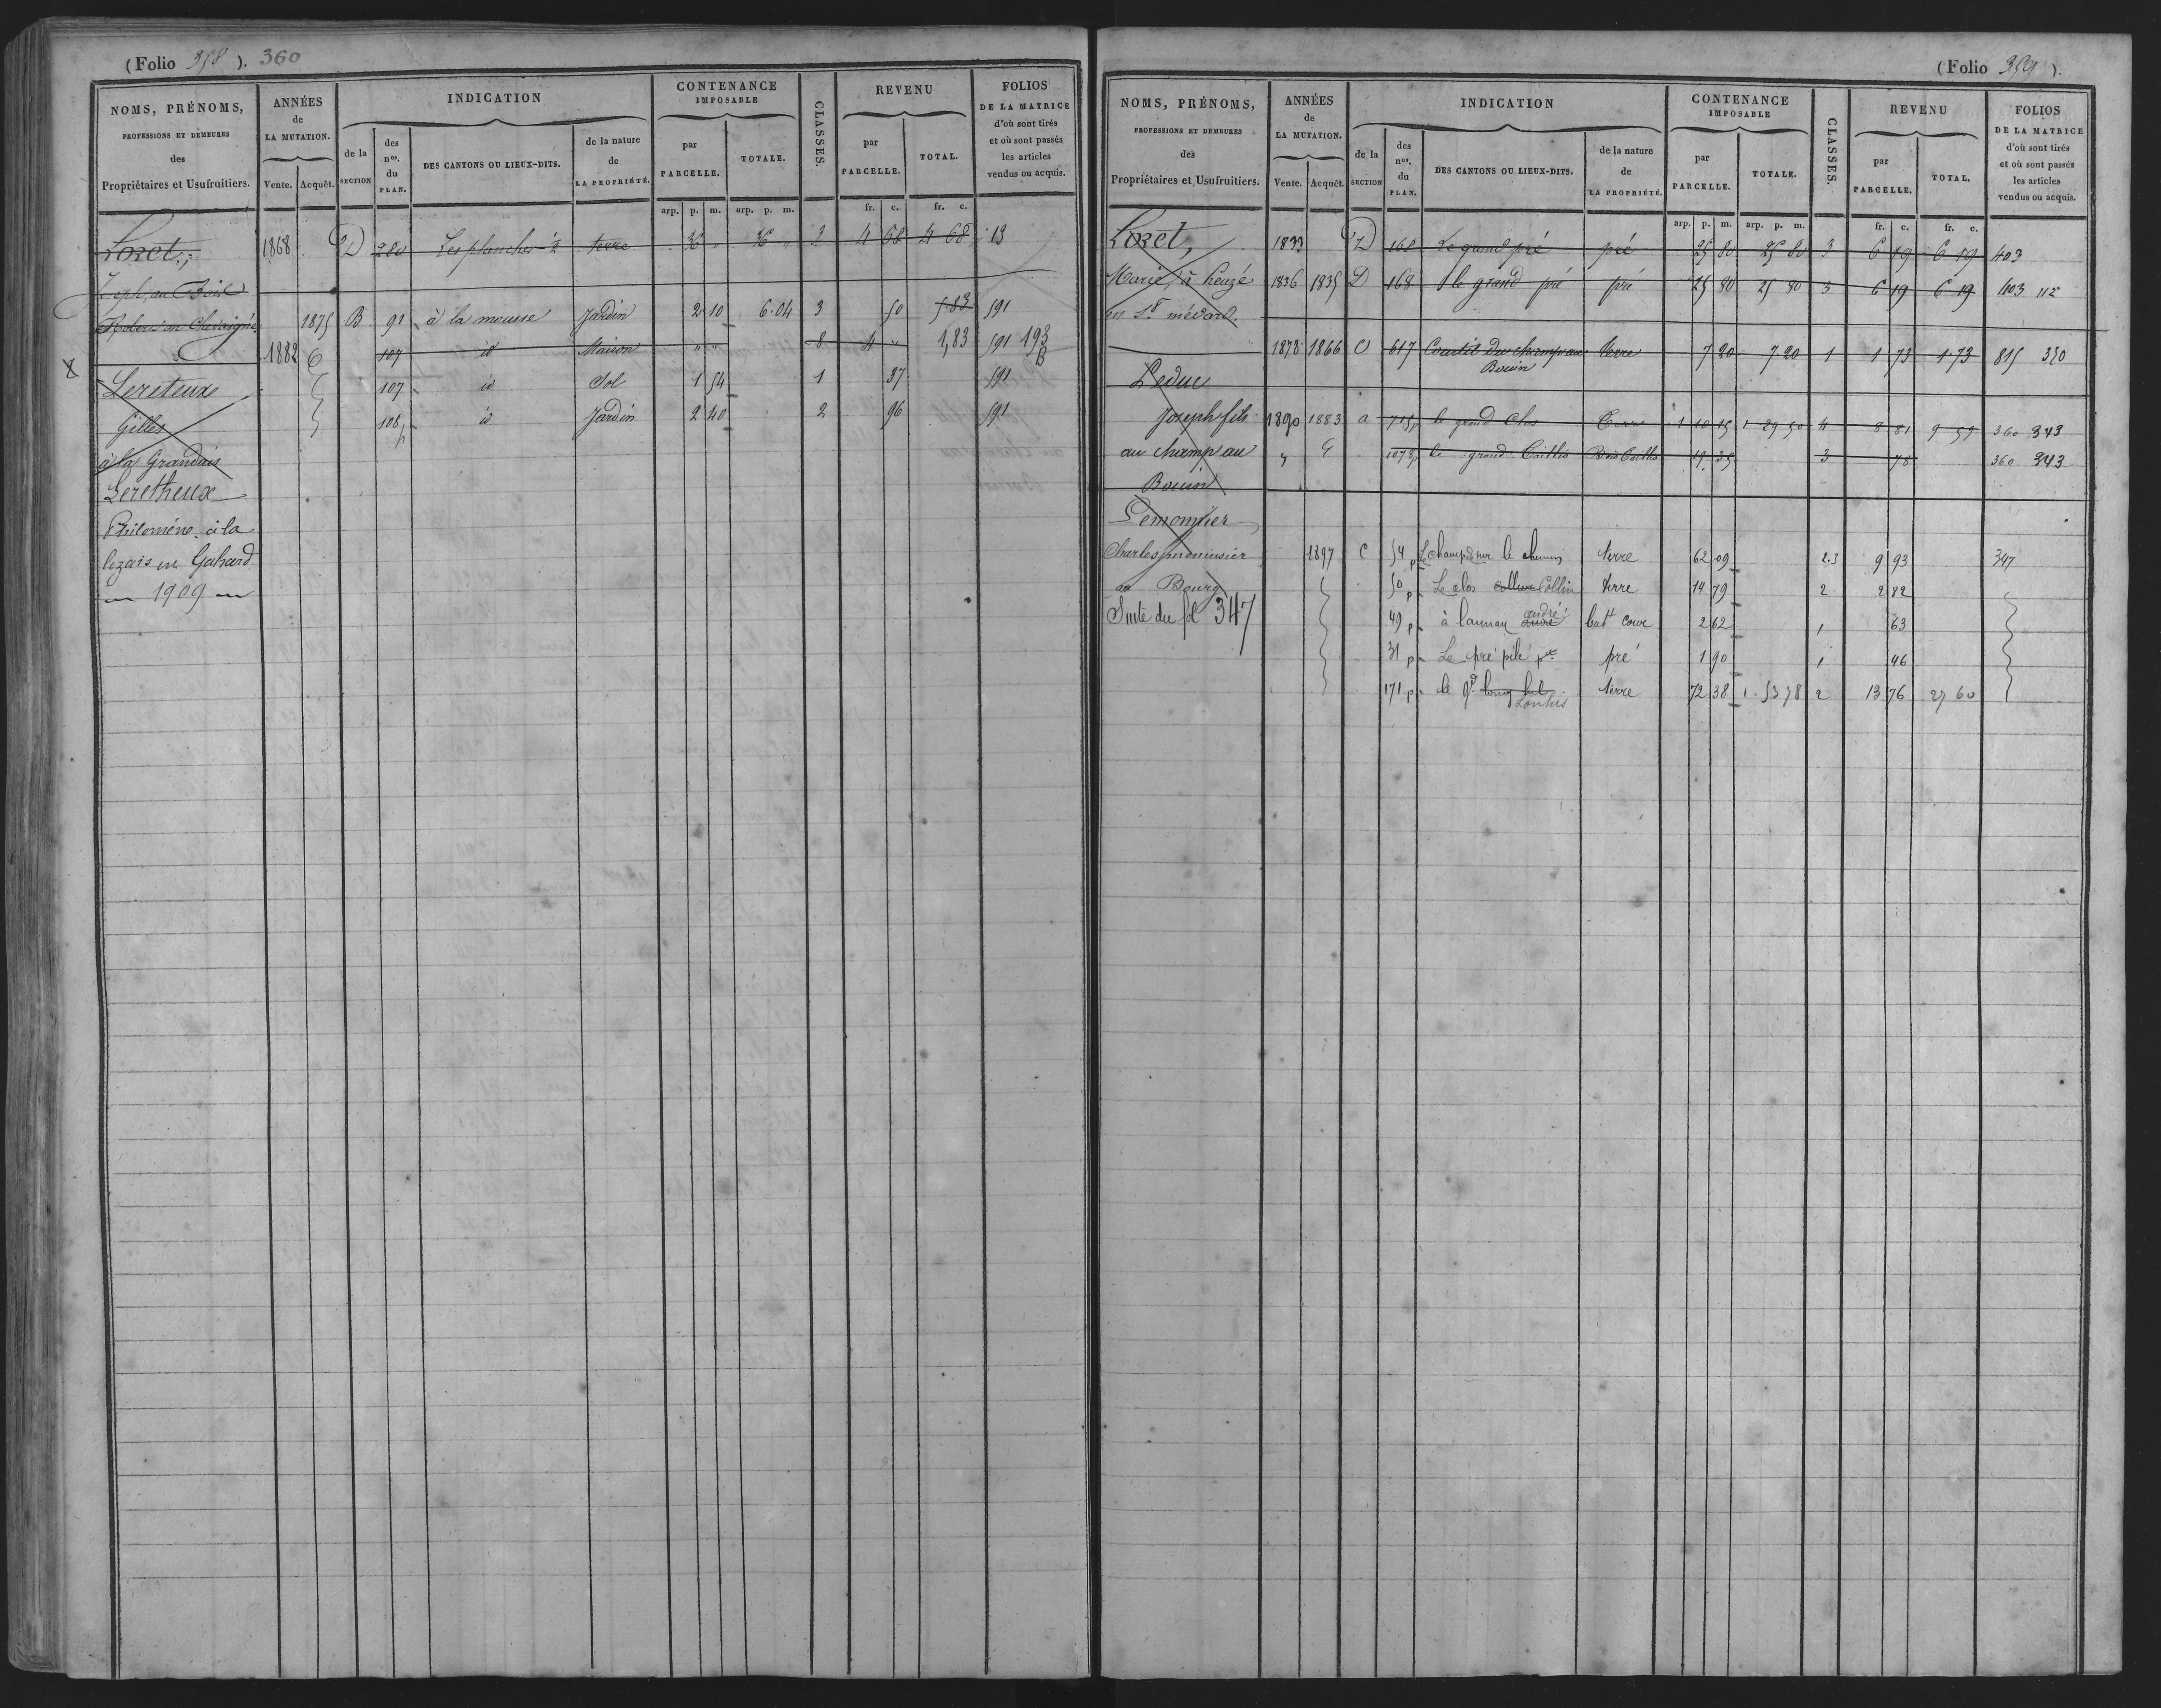 (Folio 358). 360
NOMS, PRÉNOMS, PROFESSIONS ET DEMEURES des Propriétaires et Usufruitiers.
ANNÉES de LA MUTATION. Vente. Acquêt.
INDICATION
de la SECTION des nos. du PLAN. DES CANTONS OU LIEUX-DITS. de la nature de LA PROPRIÉTÉ.
CONTENANCE IMPOSABLE par PARCELLE. TOTALE.
CLASSES.
REVENU par PARCELLE. TOTAL.
FOLIOS DE LA MATRICE d'où sont tirés et où sont passés les articles vendus ou acquis.
arp. p. m. arp. p. m. fr. c. fr. c.
Lozet, 1868 D 280 Les planches terre 36 " 36 " 3 4 68 4 68 13
Joseph, au
1875 B 91 à la mousse Jardin 2 10 6.04 3 50 5 83 591
1882 107 id Maison " " 8 4 " 1,83 591 193 B
Lereteux 107 id Sol 1 54 1 37 591
Gilles 108 p id Jardin 2 40 2 96 591
à la Grandais
Leretheux
Philomène à la
lizais en Gahard
1909
(Folio 359).
NOMS, PRÉNOMS, PROFESSIONS ET DEMEURES des Propriétaires et Usufruitiers.
ANNÉES de LA MUTATION. Vente. Acquêt.
INDICATION
de la SECTION des nos. du PLAN. DES CANTONS OU LIEUX-DITS. de la nature de LA PROPRIÉTÉ.
CONTENANCE IMPOSABLE par PARCELLE. TOTALE.
CLASSES.
REVENU par PARCELLE. TOTAL.
FOLIOS DE LA MATRICE d'où sont tirés et où sont passés les articles vendus ou acquis.
arp. p. m. arp. p. m. fr. c. fr. c.
Lozet, 1833 D 168 Le grand pré pré 25 80 25 80 3 6 19 6 19 403
Marie, à heuzé 1836 1835 D 168 le grand pré pré 25 80 25 80 3 6 19 6 19 403 112
en St médard.
1878 1866 C 617 Courtil du champ au Bouin terre 7 20 7 20 1 1 73 1 73 815 350
Leduc
Joseph fils 1890 1883 a 715p le grand Clos Terre 1 10 15 1 29 50 4 8 81 9 59 360 343
au champ au " 1078p le grand Taillis Bois Taillis 19 35 3 78 360 343
Bouin
Lemonnier
Charles menuisier 1897 C 54 p Le champ sur le chemin terre 62 09 2.3 9 93 347
au Bourg 50 p Le clos Collin terre 14 79 2 2 82
Suite du fol 347 49 p à launay andré andré bat cour 2 62 1 63
31 p Le pré pilé pré 1 90 1 46
171 p le gd terre 72 38 1 53 78 2 13 76 27 60